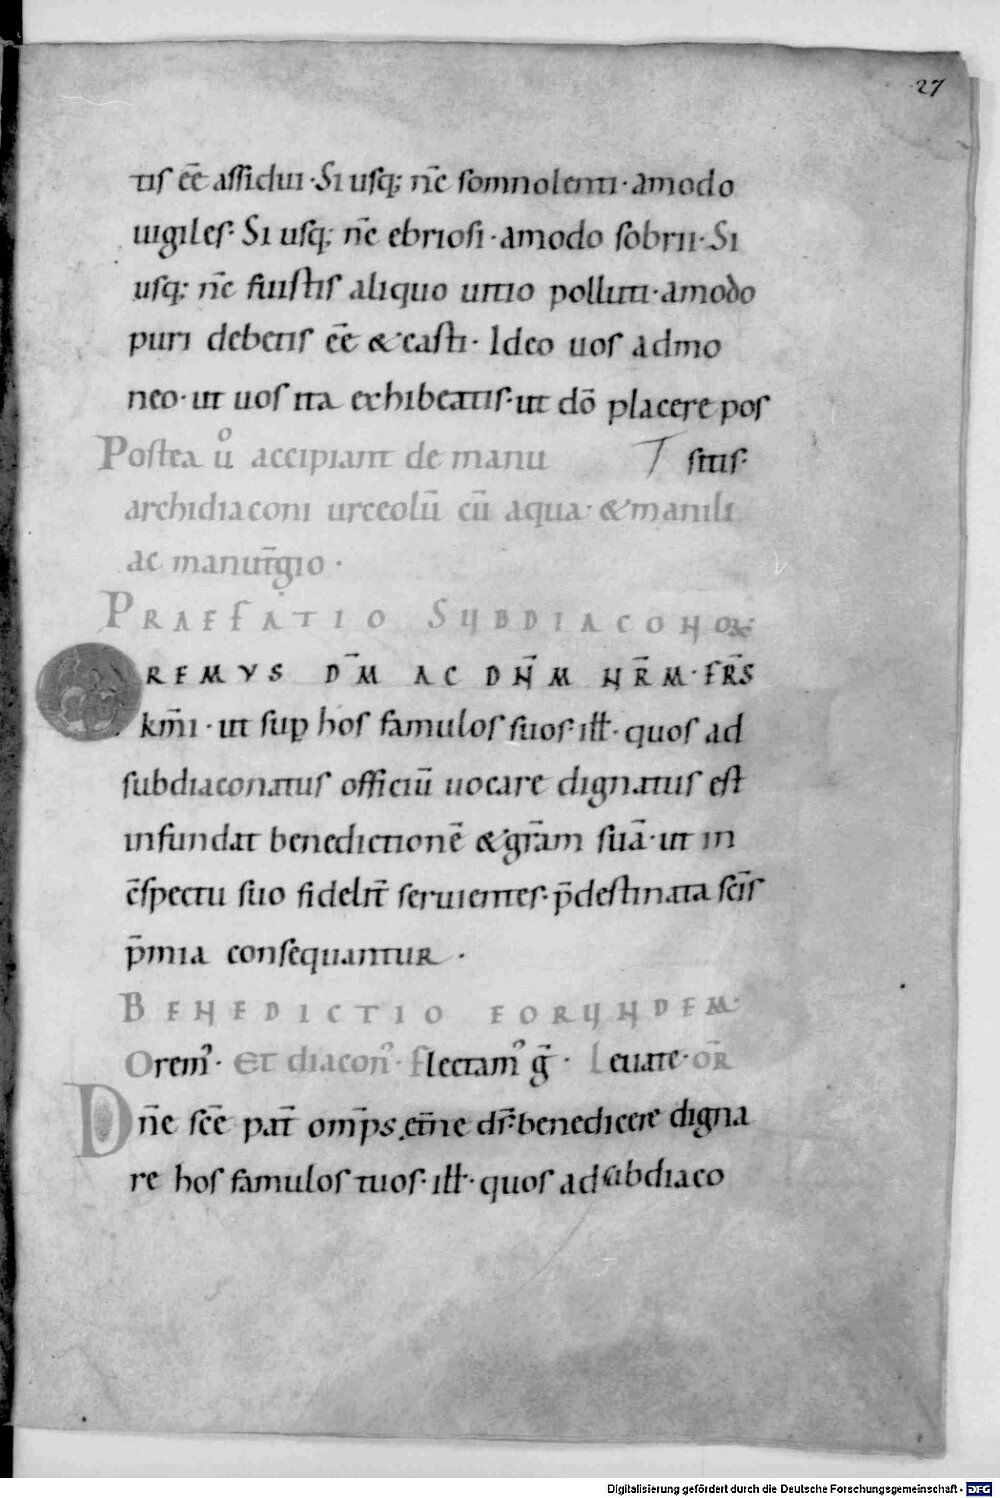 27
tis eē assidui · Si usq; nc̄ somnolenti · amodo
uigiles · Si usq; nc̄ ebriosi · amodo sobrii · Si
usq; nc̄ fuistis aliquo uitio polluti · amodo
puri debetis eē & casti · Ideo uos admo
neo · ut uos ita exhibeatis · ut dō placere pos
sitis ·
Postea ůͦ accipiant de manu
archidiaconi urceolū cū aqua · & manili
ac manut̄gio ·
PRAEFATIO SUBDIACONOꝜ
OREMUS DM̄ AC DN̄M NR̄M · FR̄S
km̄i · ut sup hos famulos suos · ill · quos ad
subdiaconatus officiū uocare dignatus est
infundat benedictionē & gr̄am suā · ut in
c̄spectu suo fidelit̄ seruientes · p̄destinata sc̄is
p̄mia consequantur ·
BENEDICTIO EORUNDEM ·
Orem᾿ · Et diacon᾿ · Flectam᾿ ḡ · Leuate · OR̄
Dn̄e sc̄e pat̄ om̄ps, et̄ne dr̄ · benedicere digna
re hos famulos tuos · ill · quos ad subdiaco
Digitalisierung gefördert durch die Deutsche Forschungsgemeinschaft - DFG